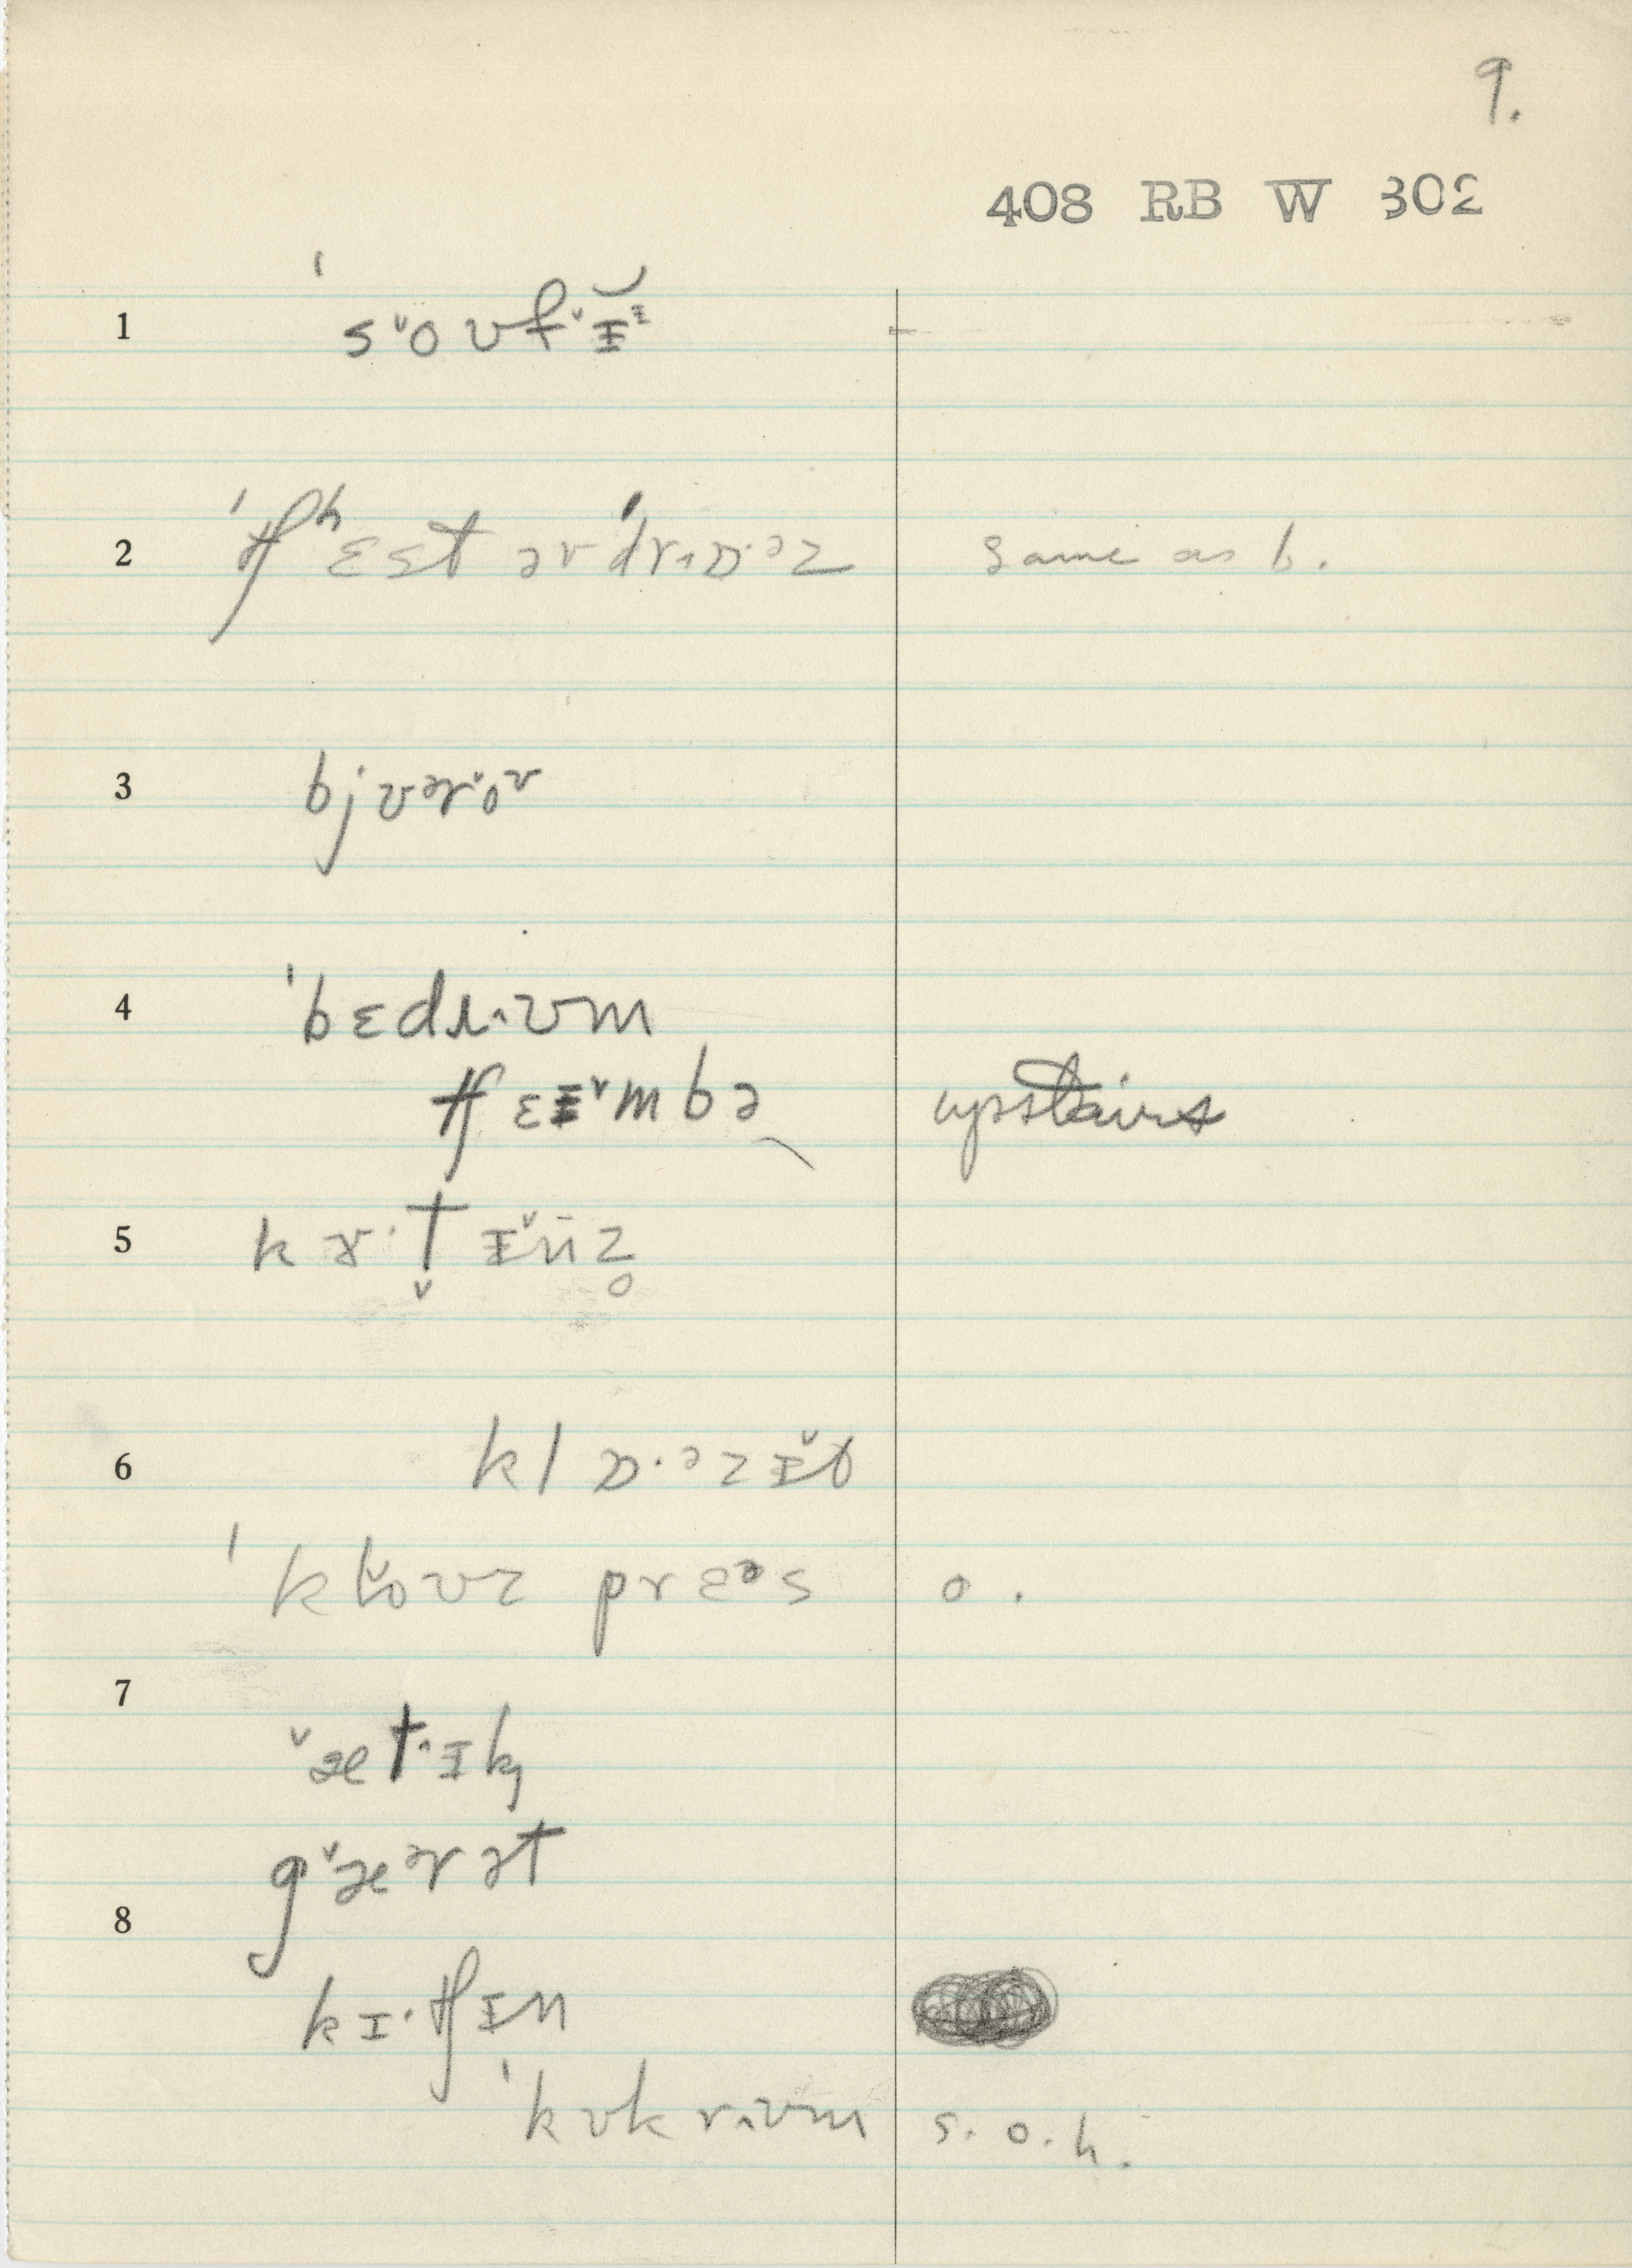 9.
408 RB W 302
1 ˈs˅oʊf˅ɪᶦ
2 ˈtʃʰɛst əv ˈdrɒ·ᵊz same as b.
3 bjʊᵊr˅oᶷ
4 ˈbɛdɹ˄ʊm
tʃɛɪ˅mbə upstairs
5 kɜ·t̬ɪ̌n̄z̥
6 klɒ·ᵊzɪ̌t
ˈkl˅oʊz prɛᵊs o.
7 ˅æt˄ɪk
g˅æᵊrət
8 kɪ·tʃɪn
ˈkʊkr˄ʊm s. o. h.